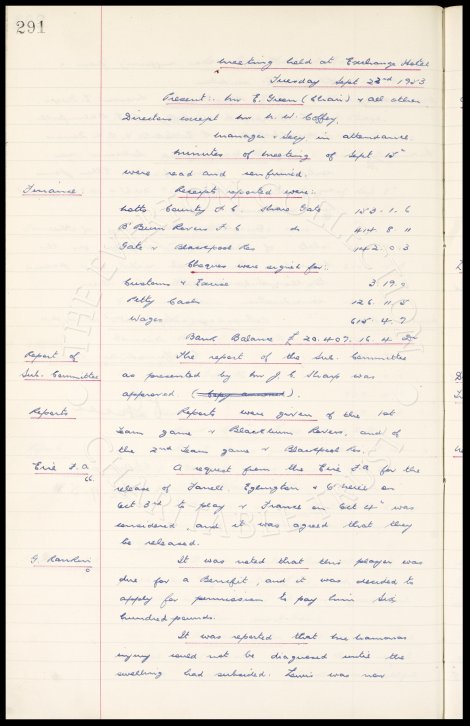 291
Meeting held at Exchange Hotel
Tuesday Sept 22nd 1953
Present:- Mr E. Green (Chair) & all other
Directors except Mr N. W. Coffey,
Manager & Secy in attendance.
Minutes of Meeting of Sept 15th
were read and confirmed.
Finance
Receipts reported were:
Notts. County F.C. Share Gate 153. 1. 6
B'Burn Rovers F.C do 414. 8. 11
Gate v Blackpool Res 142. 0. 3
Cheques were signed for:
Customs & Excise
Petty Cash 126. 11. 5
Wages 615. 4. 7
Bank Balance £ 20.407. 16. 4 Dr
Report of
Sub. Committee
The report of the Sub. Committee
as presented by Mr J. C. Sharp was
approved. (Copy annexed).
Reports
Reports were given of the 1st
Team game v Blackburn Rovers, and of
the 2nd Team game v Blackpool Res.
Eire F.A
A request from the Eire F.A for the
release of Farrell, Eglington & O'Neill on
Oct 3rd to play v France on Oct 4th was
considered, and it was agreed that they
be released.
G. Rankin
It was noted that this player was
due for a Benefit, and it was decided to
apply for permission to pay him six
hundred pounds.
It was reported that McNamaras
injury could not be diagnosed until the
swelling had subsided. Lewis was now